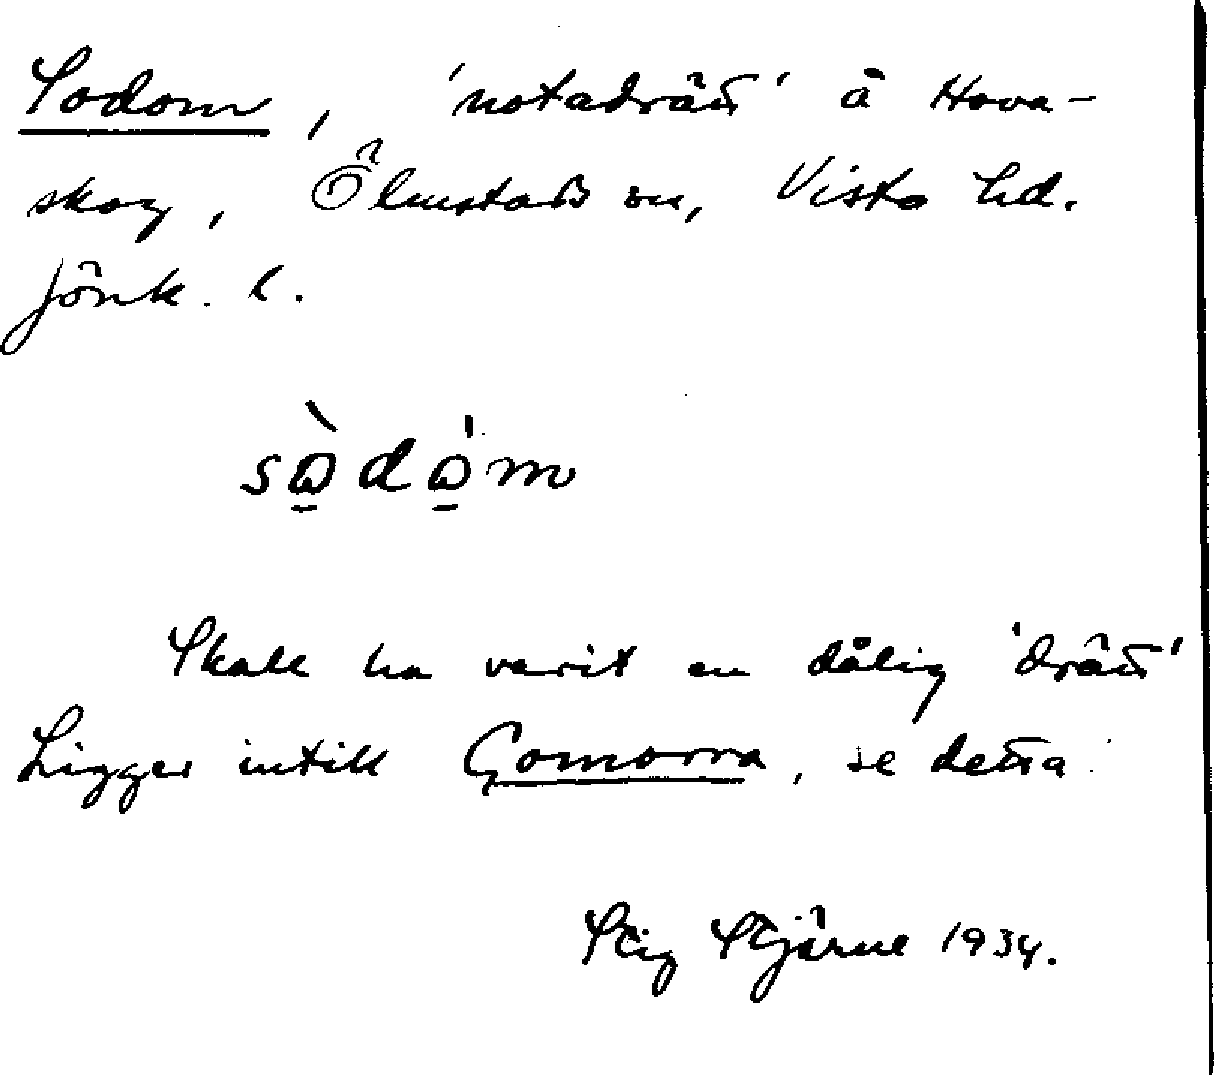 Sodom, 'notadrätt' å Hova-
skog, Ölmstads sn, Vista hd.
Jönk. l.
sὼ̱dω̱̍m
Skall ha varit en dålig 'drätt'
Ligger intill Gomorra, se detta.
Stig Stjärne 1934.